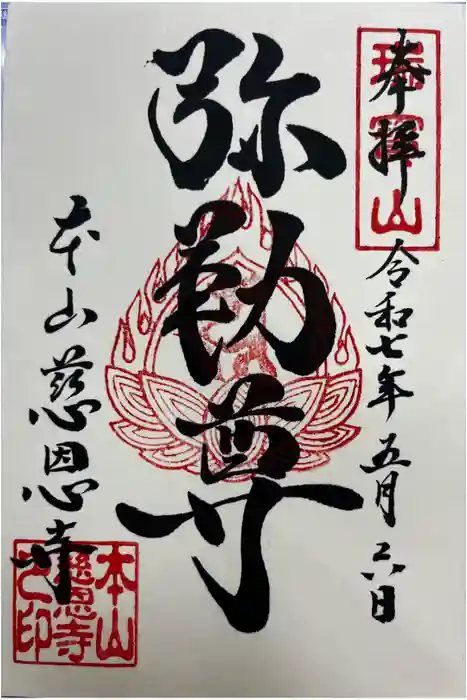 奉拝
瑞寳山
令和七年五月二六日
弥勒尊
本山慈恩寺
本山
慈恩寺
之印